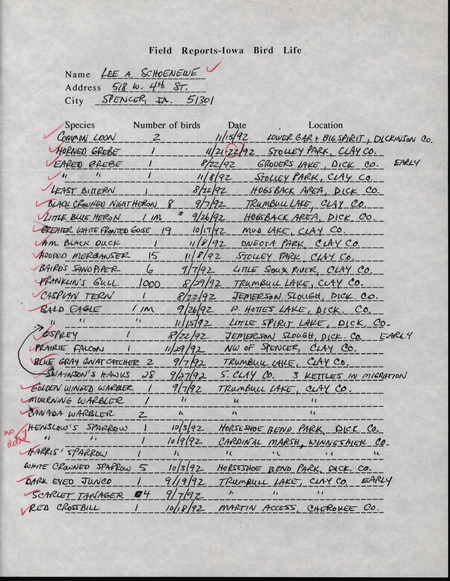 Field Reports-Iowa Bird Life
Name LEE A. SCHOENEWE
Address 518 W. 4th ST.
City SPENCER, IA. 51301
Species Number of birds Date Location
COMMON LOON 2 11/15/92 LOWER GAR + BIG SPIRIT, DICKINSON CO.
HORNED GREBE 1 11/21-22/92 STOLLEY PARK, CLAY CO.
EARED GREBE 1 8/22/92 GROVERS LAKE, DICK CO. EARLY
" " 1 11/8/92 STOLLEY PARK, CLAY CO.
LEAST BITTERN 1 8/22/92 HOGSBACK AREA, DICK CO.
BLACK CROWNED NIGHT HERON 8 9/7/92 TRUMBULL LAKE, CLAY CO.
LITTLE BLUE HERON 1 IM 9/26/92 HOGSBACK AREA, DICK CO.
GREATER WHITE FRONTED GOOSE 19 10/17/92 MUD LAKE, CLAY CO.
AM. BLACK DUCK 1 11/8/92 ONEOTA PARK, CLAY CO.
HOODED MERGANSER 15 11/8/92 STOLLEY PARK, CLAY CO.
BAIRD'S SANDPIPER 6 9/7/92 LITTLE SIOUX RIVER, CLAY CO.
FRANKLIN'S GULL 1000 8/29/92 TRUMBULL LAKE, CLAY CO.
CASPIAN TERN 1 8/22/92 JEMERSON SLOUGH, DICK CO.
BALD EAGLE 1 IM 9/26/92 HOTTES LAKE, DICK. CO.
" " 1 11/15/92 LITTLE SPIRIT LAKE, DICK. CO.
OSPREY 1 8/22/92 JEMERSON SLOUGH, DICK. CO. EARLY
PRAIRIE FALCON 1 11/29/92 NW OF SPENCER, CLAY CO.
BLUE GRAY GNATCATCHER 2 9/7/92 TRUMBULL LAKE, CLAY CO.
SWAINSON'S HAWKS 28 9/27/92 S. CLAY CO. 3 KETTLES IN MIGRATION
GOLDEN WINGED WARBLER 1 9/7/92 TRUMBULL LAKE, CLAY CO.
MOURNING WARBLER 1 " " "
CANADA WARBLER 2 " " "
no detail
HENSLOW'S SPARROW 1 10/3/92 HORSESHOE BEND PARK, DICK CO.
" " 1 10/9/92 CARDINAL MARSH, WINNESHIEK CO.
HARRIS' SPARROW 1 " " " " "
WHITE CROWNED SPARROW 5 10/3/92 HORSESHOE BEND PARK, DICK CO.
DARK EYED JUNCO 1 9/19/92 TRUMBULL LAKE, CLAY CO. EARLY
SCARLET TANAGER 4 9/7/92 " " "
RED CROSSBILL 1 10/18/92 MARTIN ACCESS, CHEROKEE CO.